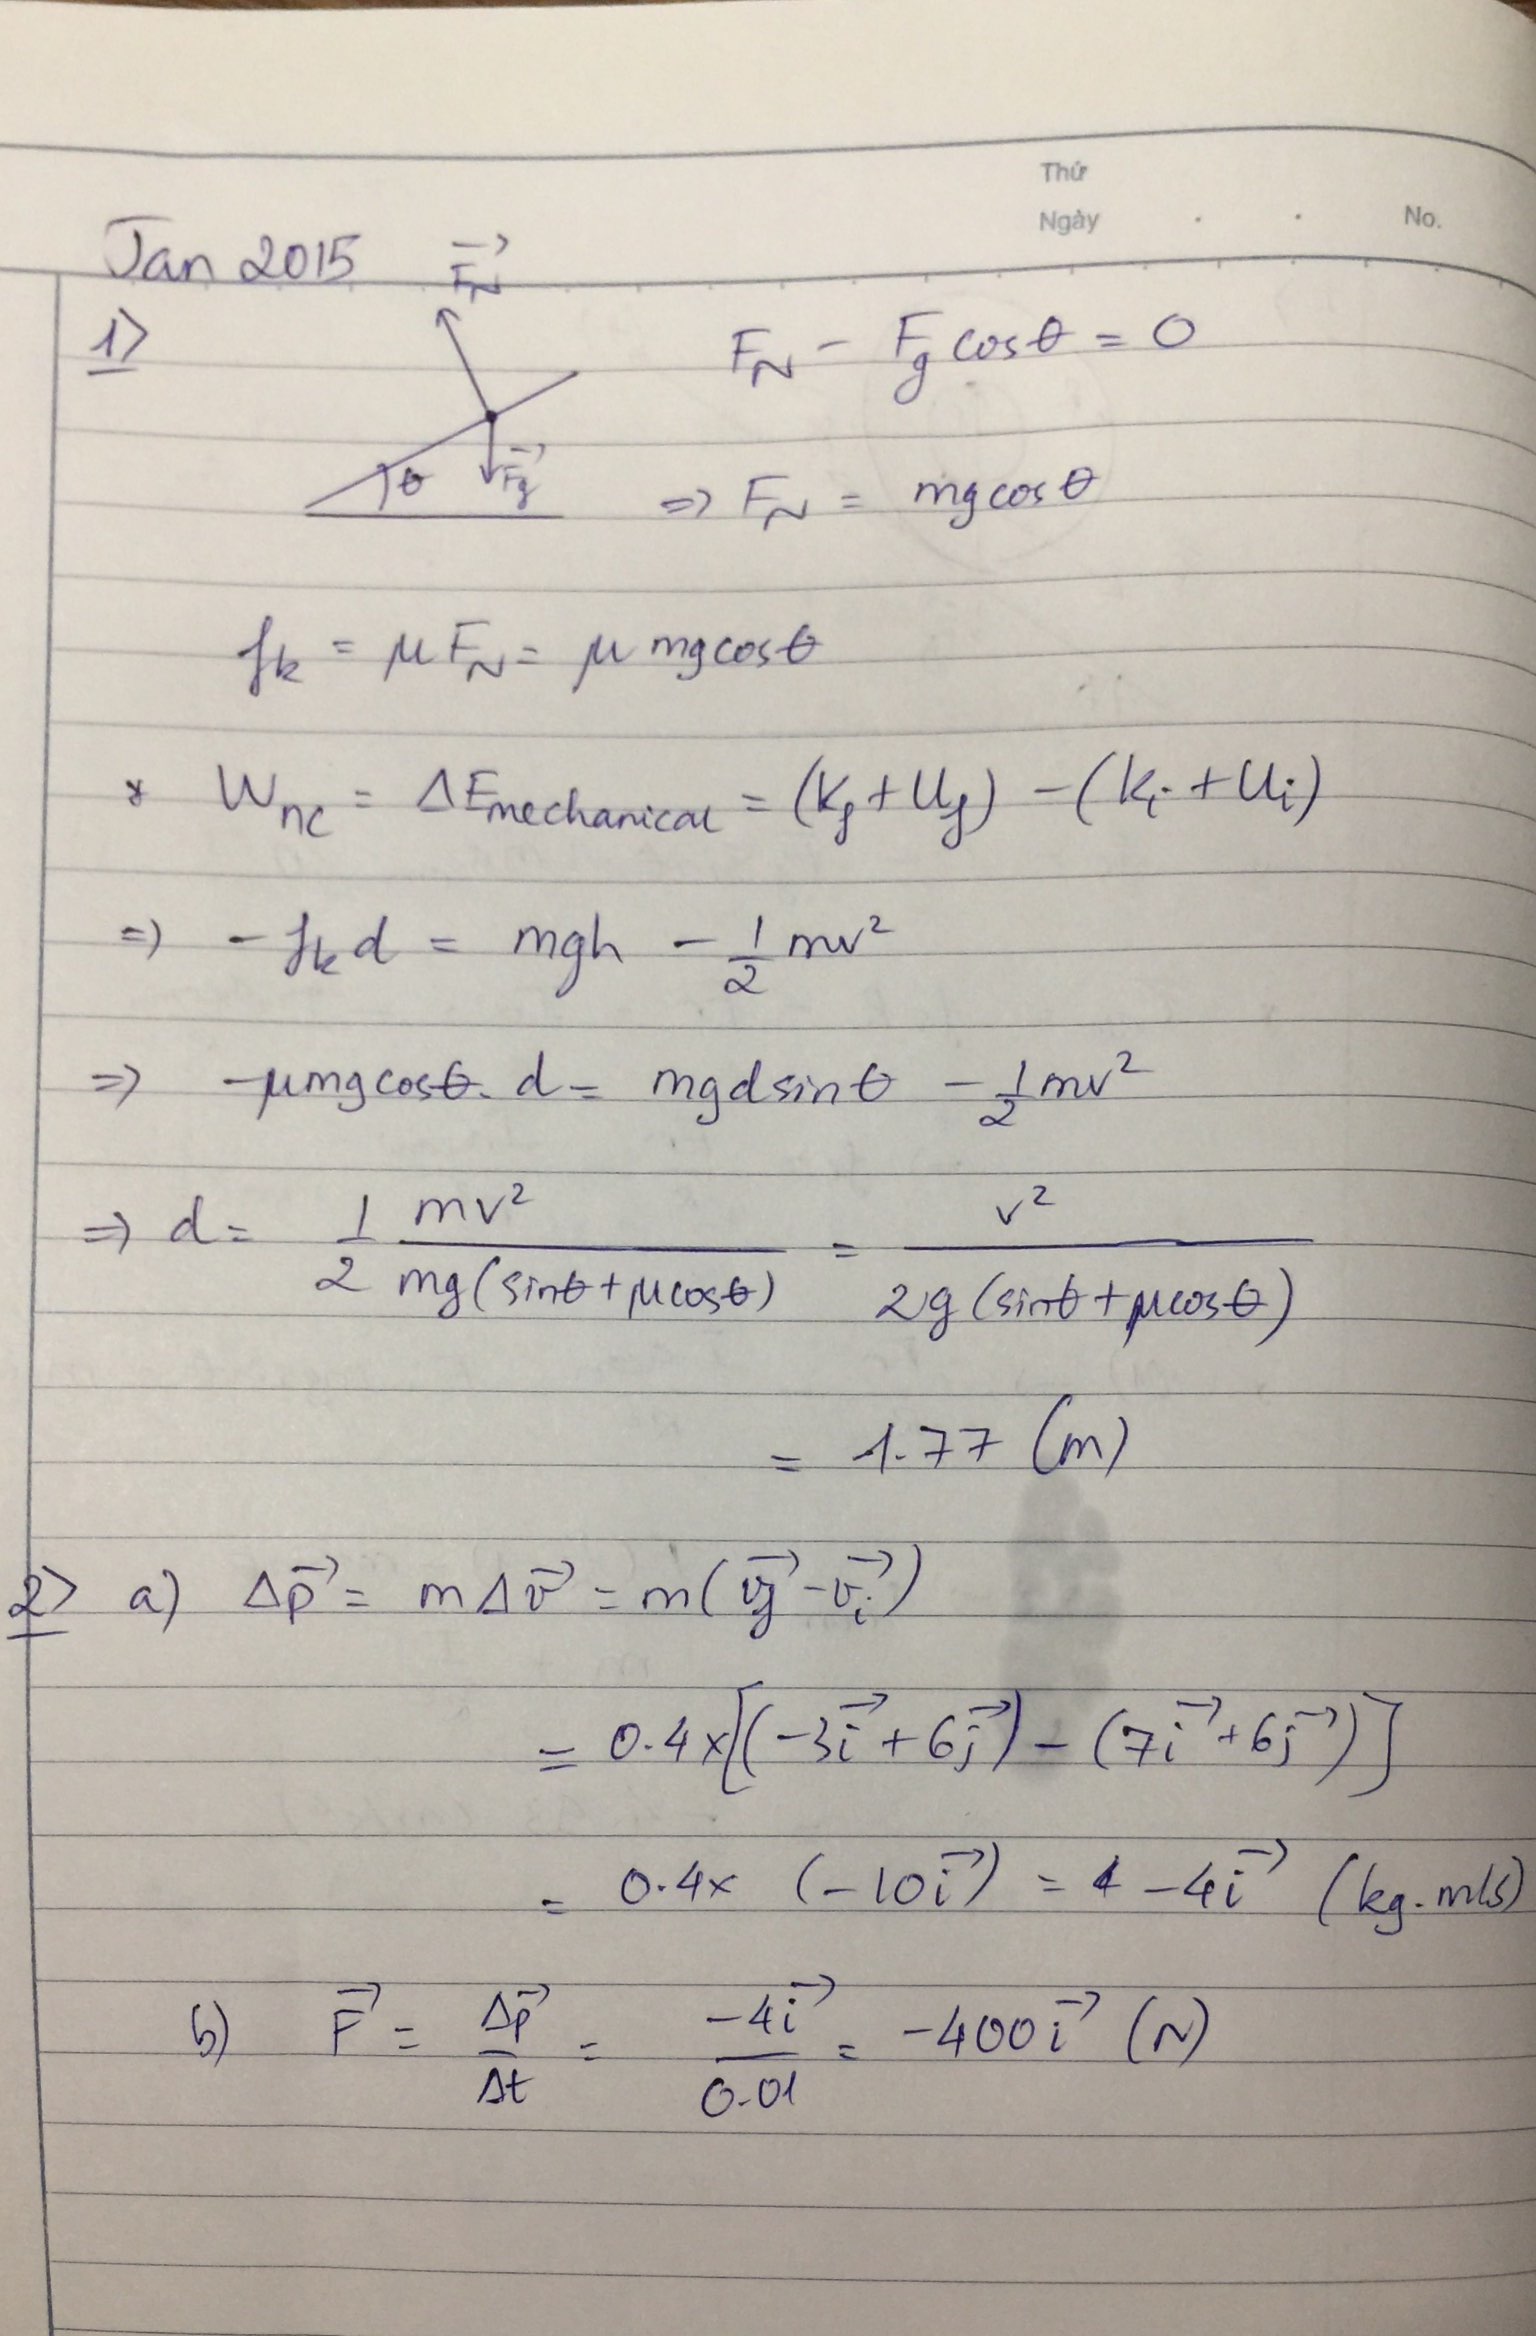 Thứ
Ngày . . No.
Jan 2015
1> F_N→ F_N - F_g cosθ = 0
θ F_g→ => F_N = mg cosθ
f_k = μ F_N = μ mg cosθ
* W_nc = ΔE_mechanical = (K_f + U_f) - (K_i + U_i)
=> - f_k d = mgh - 1/2 mv²
=> - μmg cosθ. d = mgd sinθ - 1/2 mv²
=> d = 1/2 mv²/mg(sinθ + μcosθ) = v²/2g(sinθ + μcosθ)
= 1.77 (m)
2> a) Δp→ = mΔv→ = m(v_f→ - v_i→)
= 0.4x[(-3i→ + 6j→) - (7i→ + 6j→)]
= 0.4x (-10i→) = -4i→ (kg.m/s)
b) F→ = Δp→/Δt = -4i→/0.01 = -400i→ (N)